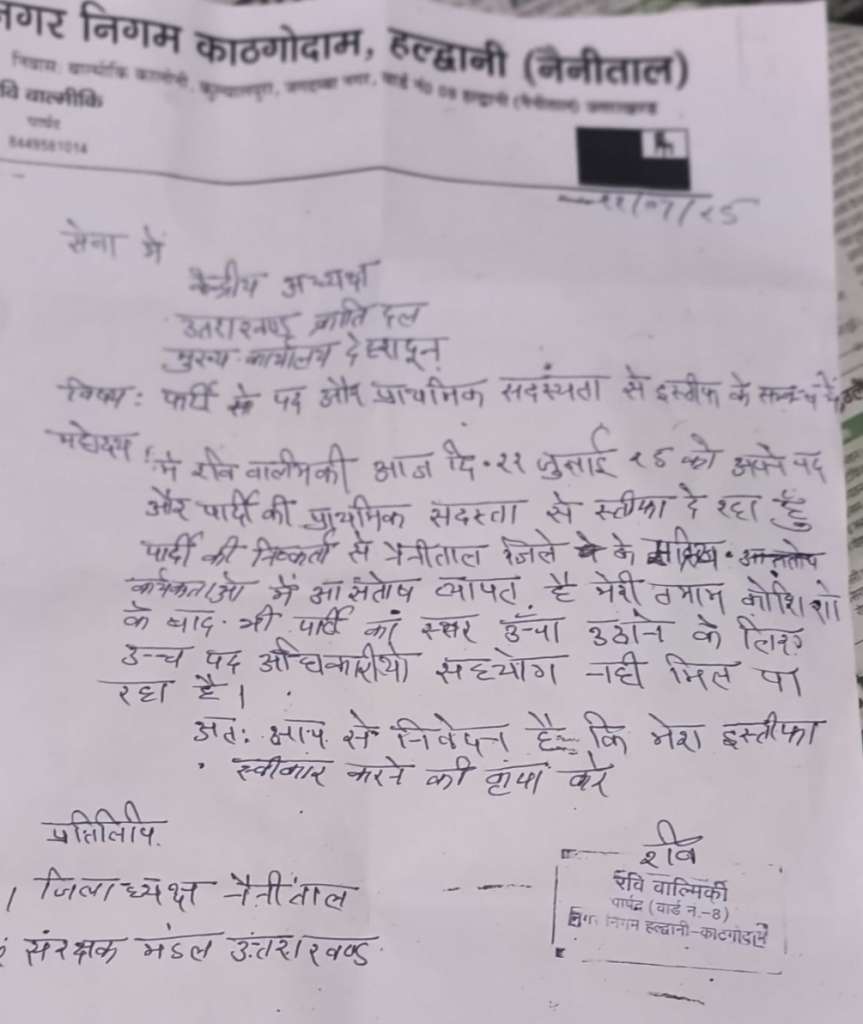 नगर निगम काठगोदाम, हल्द्वानी (नैनीताल)
वि वाल्मीकि
पार्षद
8449561014
22/07/25
सेवा में
केन्द्रीय अध्यक्ष
उत्तराखण्ड क्रांति दल
मुख्य कार्यालय देहरादून
विषय: पार्टी के पद और प्राथमिक सदस्यता से इस्तीफा के सम्बन्ध में
महोदय,
मैं रवि वाल्मिकी आज दि. 22 जुलाई 25 को अपने पद
और पार्टी की प्राथमिक सदस्ता से स्तीफा दे रहा हूँ
पार्टी की निष्कर्ता से नैनीताल जिले के
कार्यकर्ताओ में आसंतोष व्यापत है मेरी तमाम कोशिशो
के बाद भी पार्टी का स्तर ऊँचा उठाने के लिए
उच्च पद अधिकारीयो सहयोग नही मिल पा
रहा है।
अत: आप से निवेदन है कि मेरा इस्तीफा
स्वीकार करने की कृपा करे
प्रतिलिपि.
1 जिलाध्यक्ष नैनीताल
संरक्षक मंडल उत्तराखण्ड
रवि
रवि वाल्मिकी
पार्षद (वार्ड न.-8)
नगर निगम हल्द्वानी-काठगोदाम